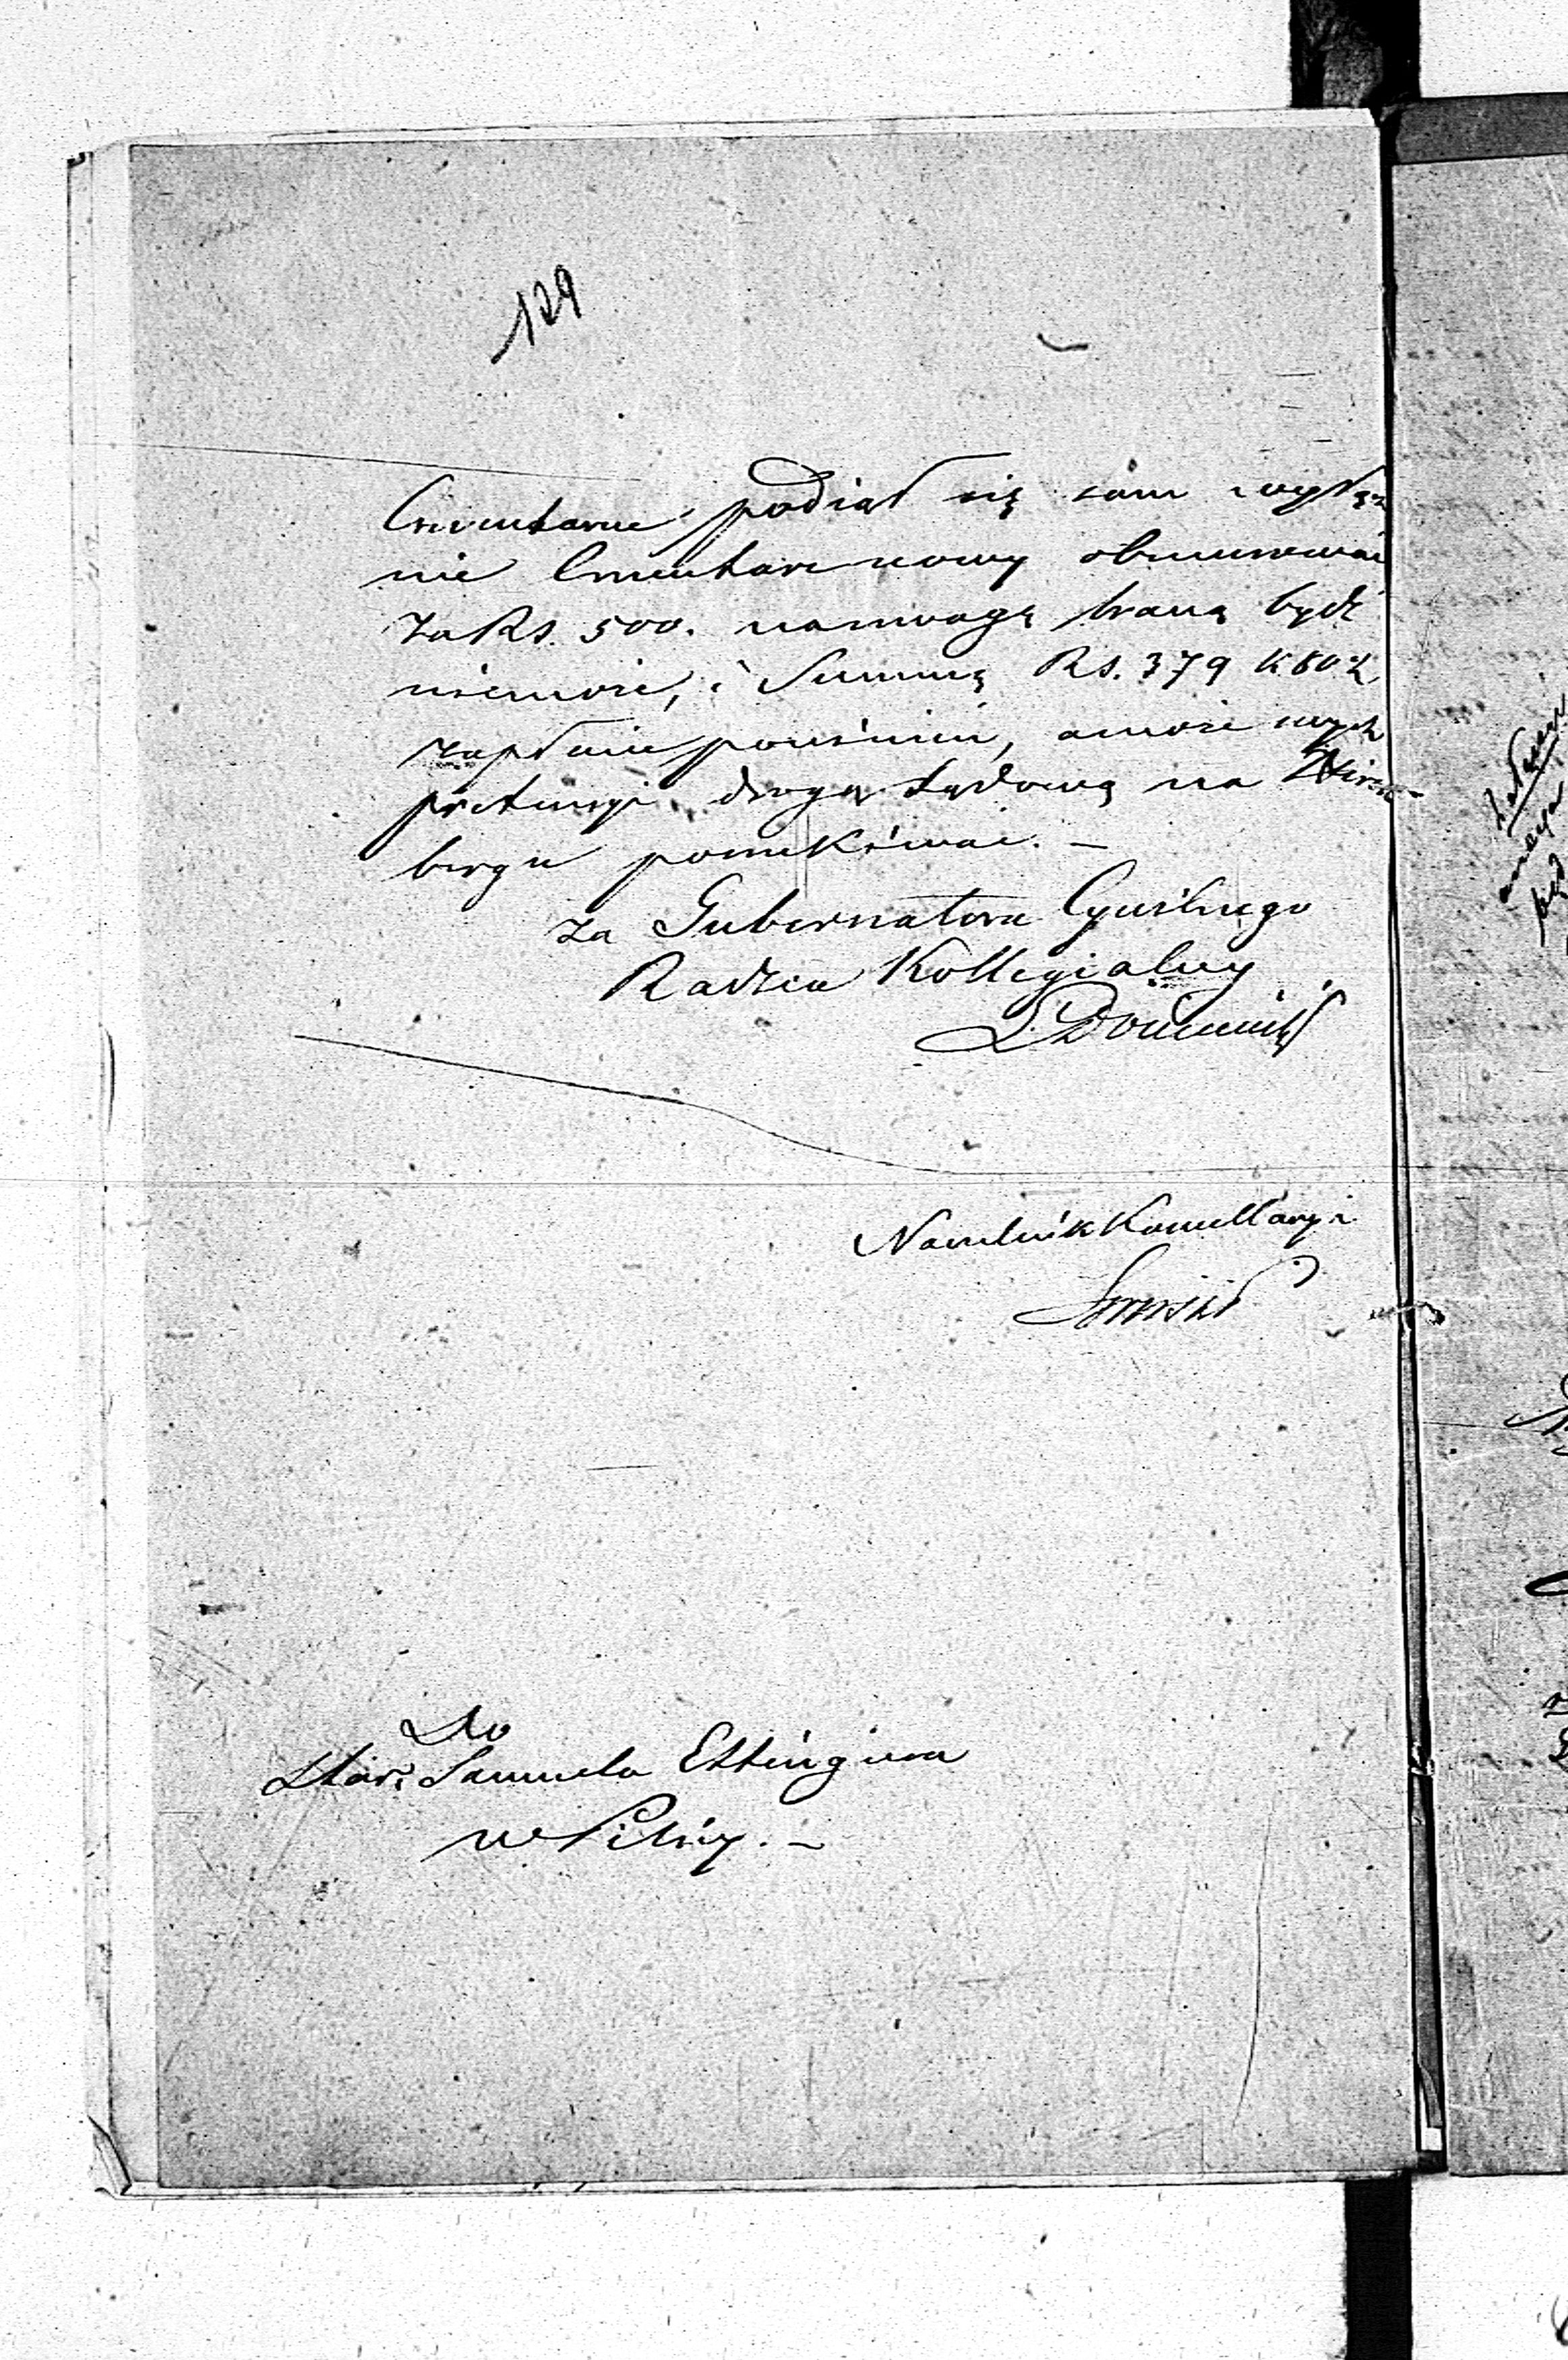 129
Cmentarne, podiął się sam wyłącz
nie Cmentarz nowy obmurować
za Rs. 500. na uwagę braną bydź
nie może, i Summę Rs. 379 k 80 ½
zapłacić powinien, a może swych
pretensyi drogą Sądową na Stern
bergu poszukiwać. —
Za Gubernatora Cywilnego
Radzca Kollegialny
Naczelnik Kancellaryi
Do
Star: Samuela Ettingera
w Pilicy. —